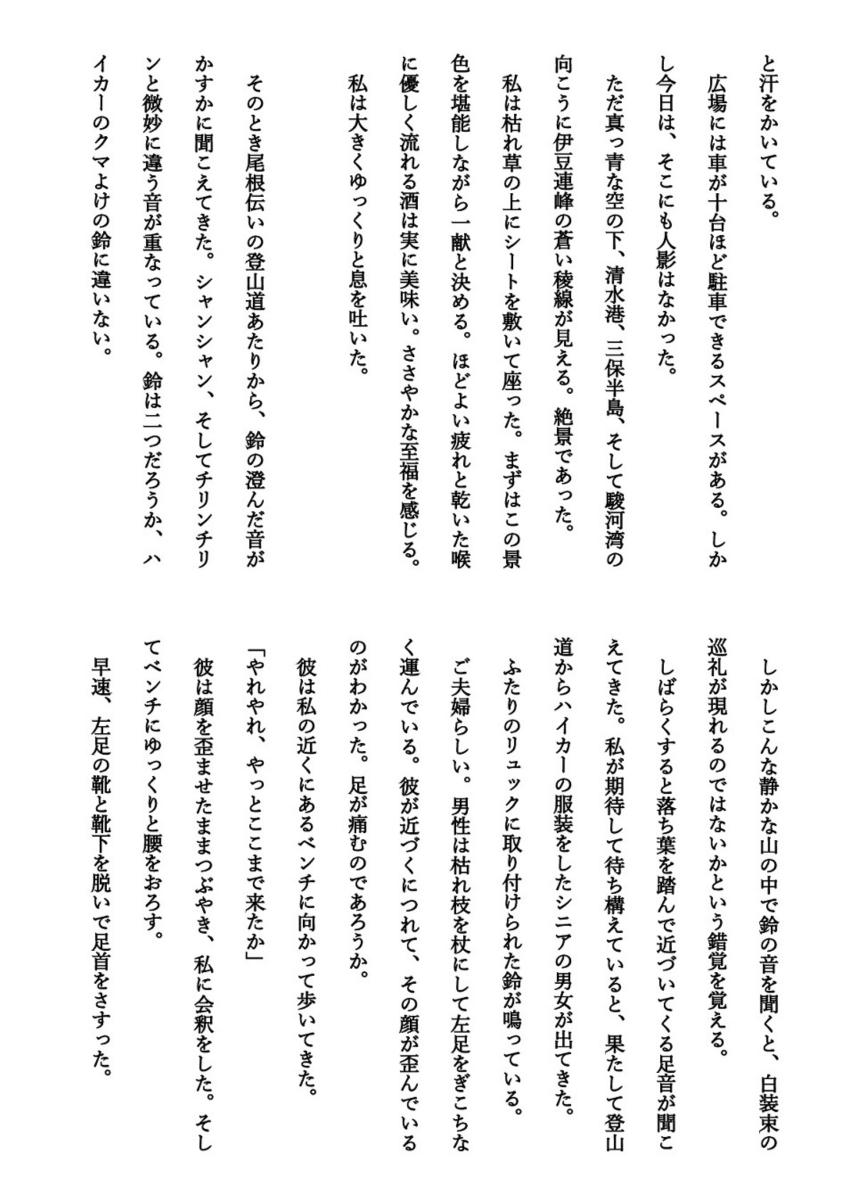 と汗をかいている。
広場には車が十台ほど駐車できるスペースがある。しか
し今日は、そこにも人影はなかった。
ただ真っ青な空の下、清水港、三保半島、そして駿河湾の
向こうに伊豆連峰の蒼い稜線が見える。絶景であった。
私は枯れ草の上にシートを敷いて座った。まずはこの景
色を堪能しながら一献と決める。ほどよい疲れと乾いた喉
に優しく流れる酒は実に美味い。ささやかな至福を感じる。
私は大きくゆっくりと息を吐いた。
そのとき尾根伝いの登山道あたりから、鈴の澄んだ音が
かすかに聞こえてきた。シャンシャン、そしてチリンチリ
ンと微妙に違う音が重なっている。鈴は二つだろうか、ハ
イカーのクマよけの鈴に違いない。
しかしこんな静かな山の中で鈴の音を聞くと、白装束の
巡礼が現れるのではないかという錯覚を覚える。
しばらくすると落ち葉を踏んで近づいてくる足音が聞こ
えてきた。私が期待して待ち構えていると、果たして登山
道からハイカーの服装をしたシニアの男女が出てきた。
ふたりのリュックに取り付けられた鈴が鳴っている。
ご夫婦らしい。男性は枯れ枝を杖にして左足をぎこちな
く運んでいる。彼が近づくにつれて、その顔が歪んでいる
のがわかった。足が痛むのであろうか。
彼は私の近くにあるベンチに向かって歩いてきた。
「やれやれ、やっとここまで来たか」
彼は顔を歪ませたままつぶやき、私に会釈をした。そし
てベンチにゆっくりと腰をおろす。
早速、左足の靴と靴下を脱いで足首をさすった。